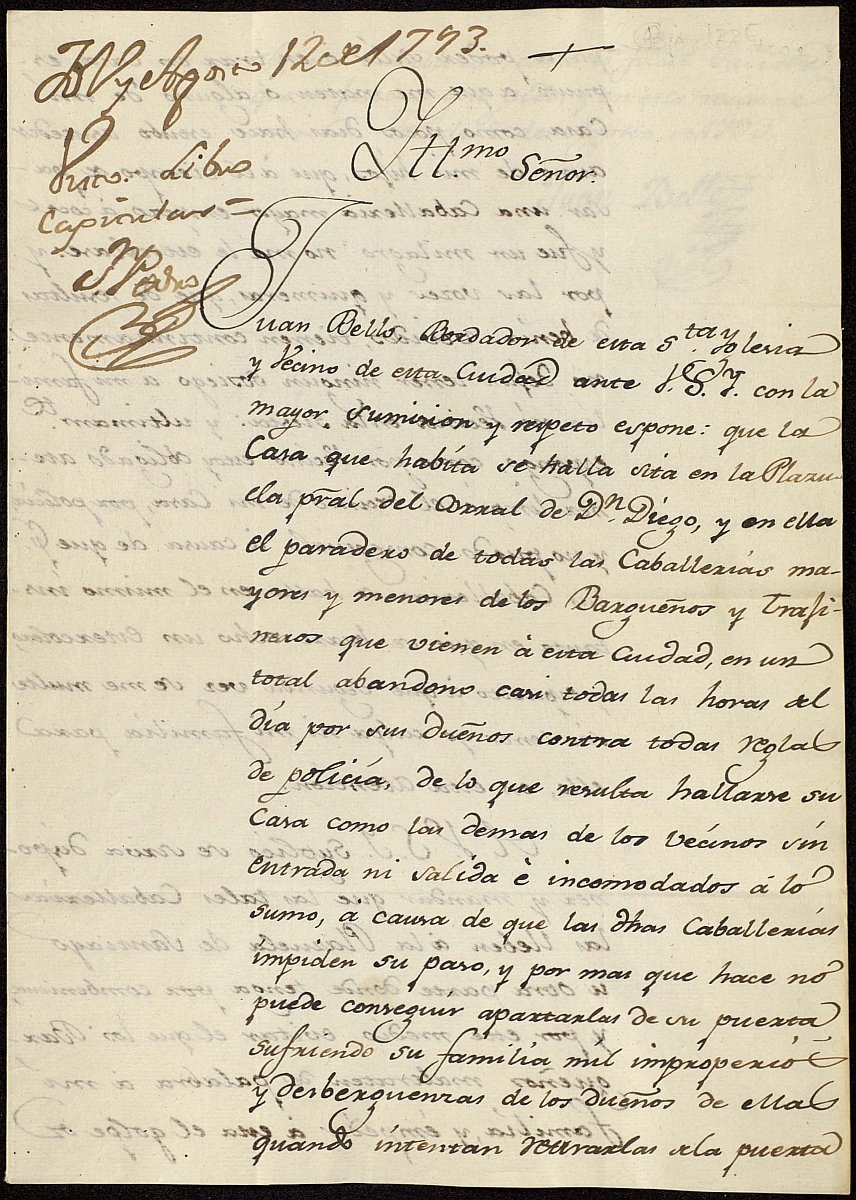 y Agosto 12 de 1793.
Visto. Libro
Capitular =
Yllmo
Señor.
Juan Bello, Bordador de esta Sta. Yglesia
y Vecino de esta Cuidad ante V.S.Y. con la
mayor sumision y respeto espone: que la
Casa que habíta se halla sita en la Plazu-
ela pral del Corral de Dn. Diego, y en ella
el paradero de todas las Caballerías ma-
yores y menores de los Bargueños y Trafi-
neros que vienen à esta Cuidad, en un
total abandono casi todas las horas del
día por sus dueños contra todas reglas
de policía, de lo que resulta hallarse su
Casa como las demas de los vecinos sin
entrada ni salida è incomodados à lo
sumo, à causa de que las dhas Caballerías
impiden su paso, y por mas que hace no
puede conseguir apartarlas de su puerta
sufriendo su familia mil improperios
y desberguenzas de los dueños de ellas
quando intentan retirarlas de la puerta